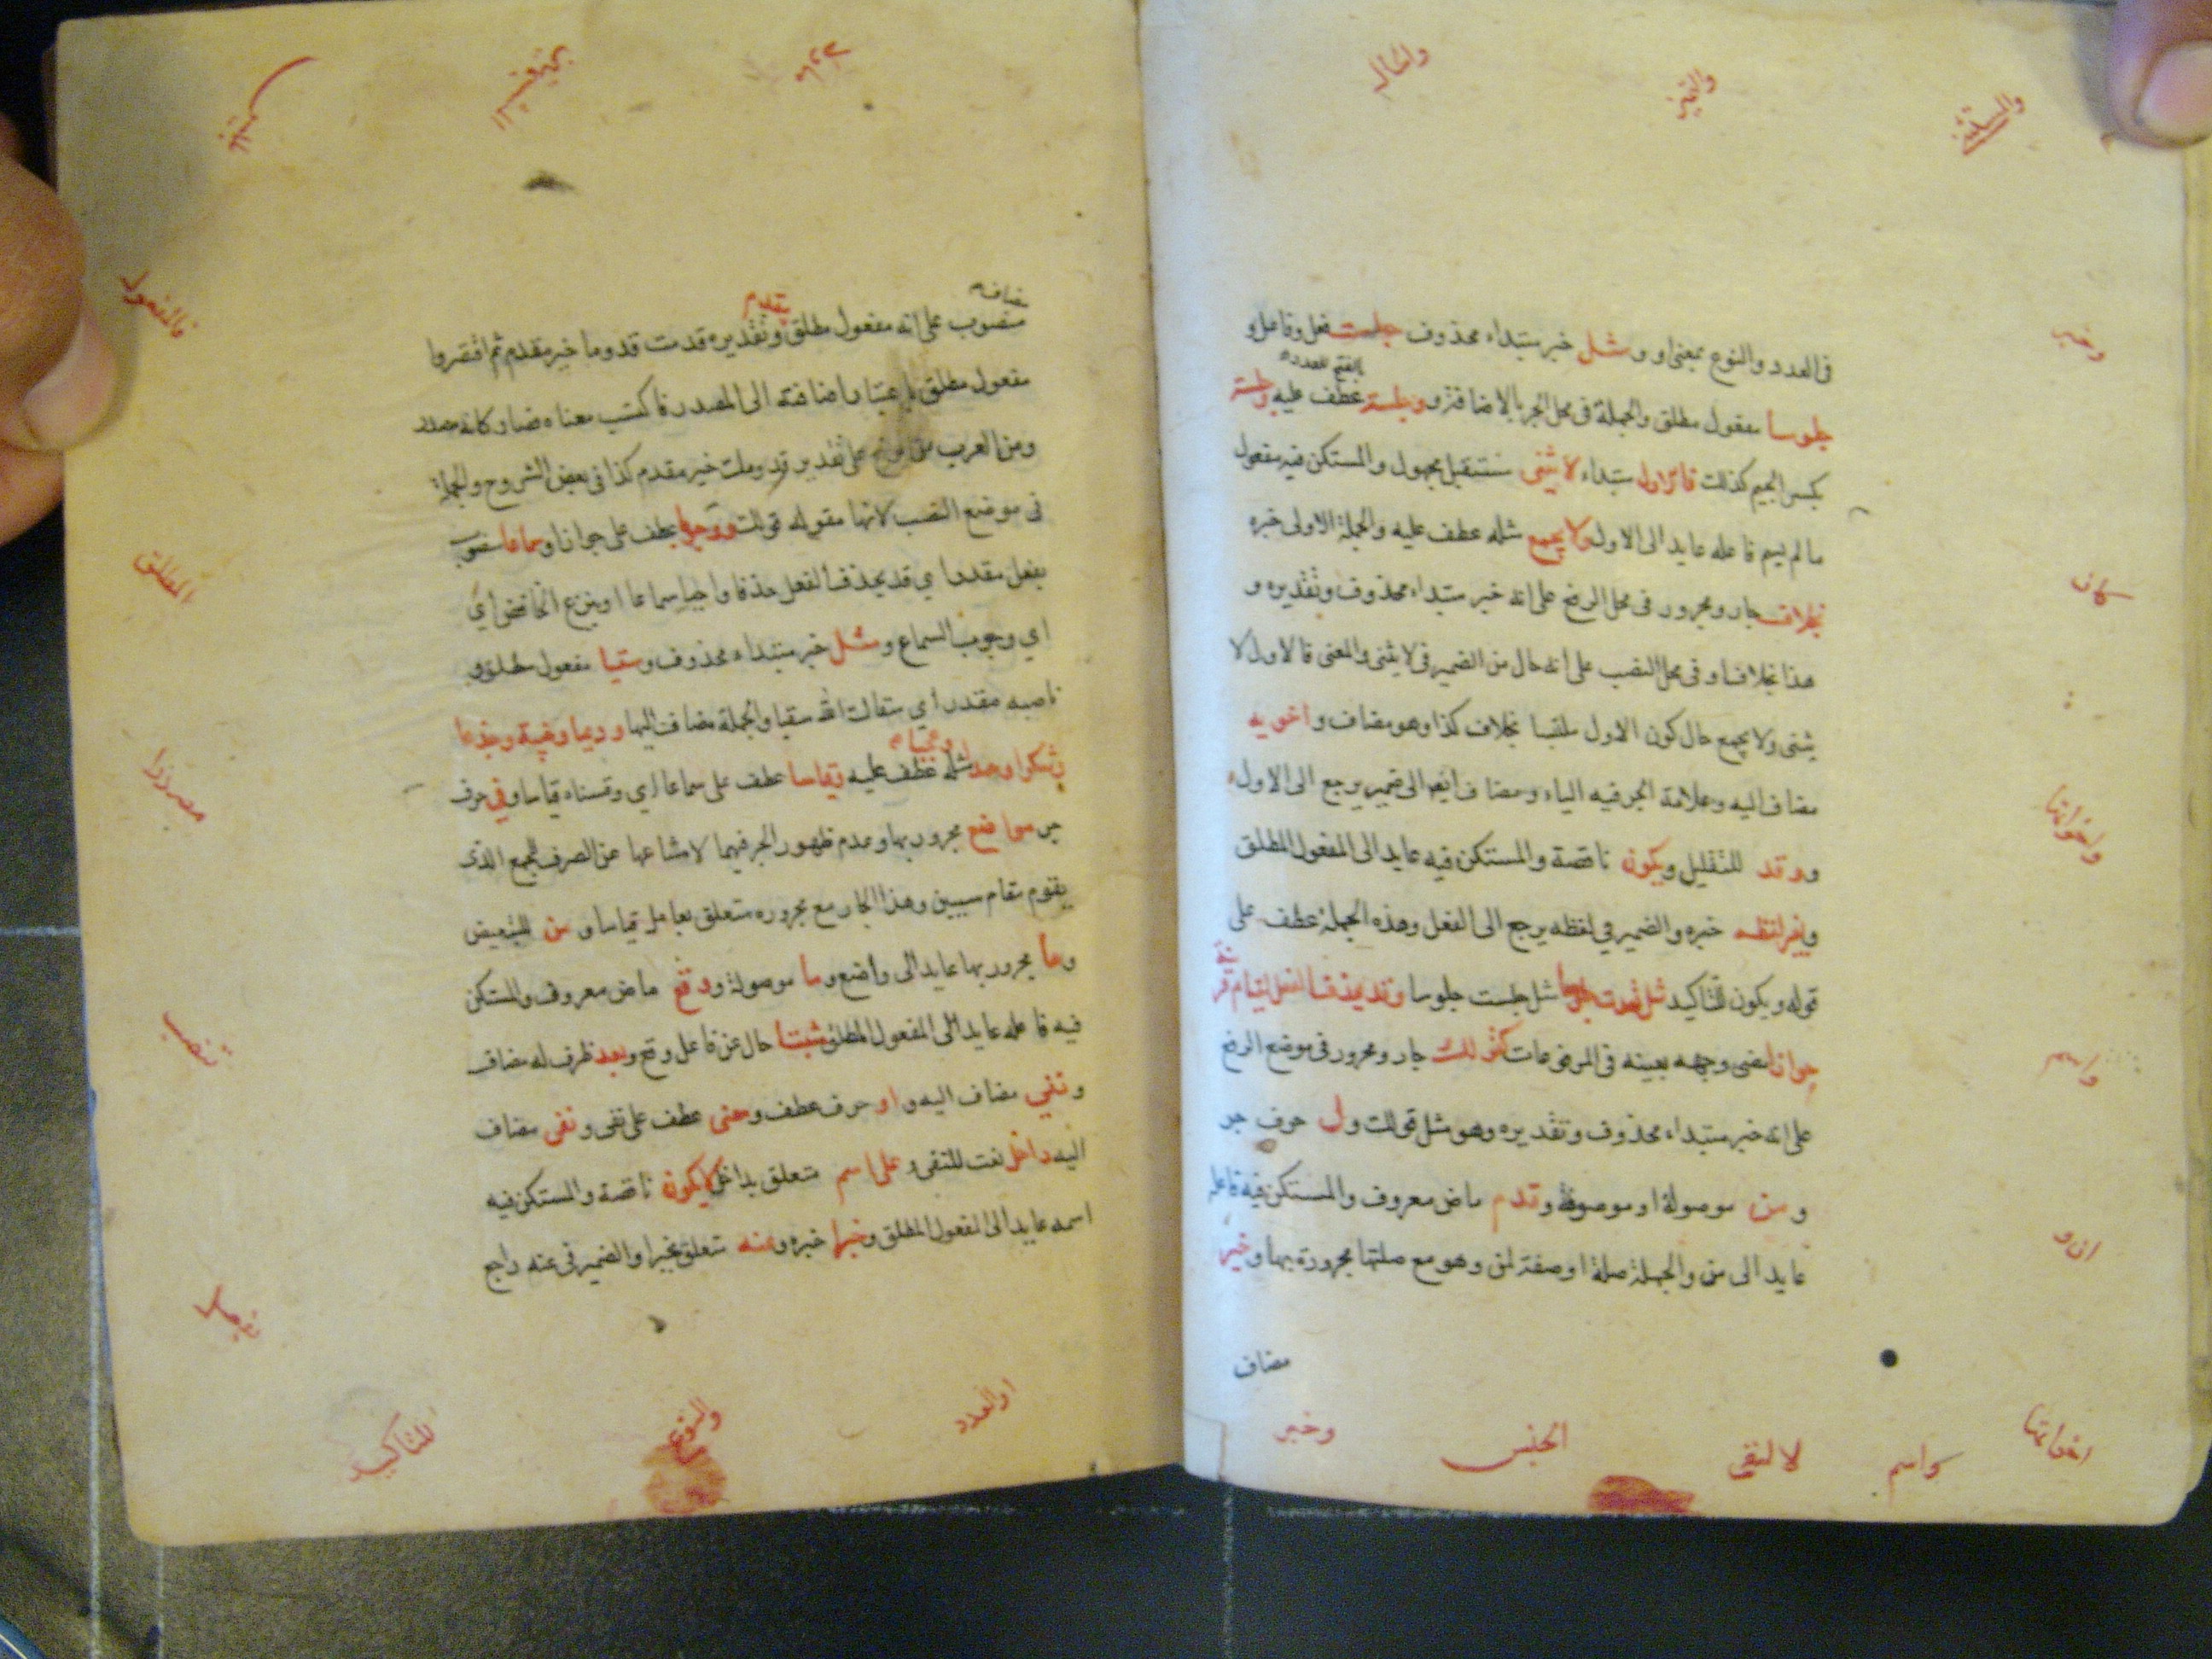 واشاله
والتميز
وخبر
كان
واخواتها
واسم
ان و
اخواتها
واسم
لا لنفى
الجنس
وخبر
فى العدد والنوع بمعنى او و مثل خبر مبتداء محذوف جلست فعل وفاعل و
بالفتح للعدد
جلوسا مفعول مطلق والجملة فى محل الجر بالاضافة و وجلسة عطف عليه وجلسة
بكسر الجيم كذلك فالاول مبتداء لا يثنى مستقبل مجهول والمستكن فيه مفعول
مالم يسم فاعله عايد الى الاول ولا يجمع مثله عطف عليه والجملة الاولى خبره
بخلاف جار ومجرور فى محل الرفع على انه خبر مبتداء محذوف وتقديره و
هذا بخلاف او فى محل النصب على انه حال من الضمير فى لا يثنى والمعنى فالاول لا
يثنى ولا يجمع حال كون الاول ملتبسا بخلاف كذا وهو مضاف و اخويه
مضاف اليه وعلامة الجر فيه الياء ومضاف ايضا الى ضمير يرجع الى الاول
و وقد للتقليل و يكون ناقصة والمستكن فيه عايد الى المفعول المطلق
و بغير لفظه خبره والضمير فى لفظه يرجع الى الفعل وهذه الجملة عطف على
قوله ويكون للتاكيد مثل قعدت جلوسا مثل جلست جلوسا وقد يحذف الفعل لقيام قر
ينة
جوازا مضى وجهه بعينه فى المرفوعات كقولك جار ومجرور فى موضع الرفع
على انه خبر مبتداء محذوف وتقديره وهو مثل قولك و ل حرف جر
و من موصولة او موصوفة و قدم ماض معروف والمستكن فيه فاعله
عايد الى من والجملة صلة او صفة لمن وهو مع صلتها مجرورة بها و خير
مضاف
فالمفعول
المطلق
او العدد
والنوع
للتاكيد
مضافه
يقدم
منصوب على انه مفعول مطلق وتقديره قدمت قدوما خير مقدم ثم اقتصروا
مفعول مطلق باعتبار اضافته الى المصدر فاكتسب معناه فصار كانه مصدر
ومن العرب على تقدير قدومك خير مقدم كذا فى بعض الشروح والجملة
فى موضع النصب لانها مقوله قولك و وجوبا عطف على جوازا و سماعا منصوب
بفعل مقدر اي قد يحذف الفعل حذفا واجبا سماعا او بنزع الخافض اي
اي وجوب السماع و مثل خبر مبتداء محذوف و سقيا مفعول مطلق و
ناصبه مقدر اي سقاك الله سقيا والجملة مضاف اليها و رعيا وخيبة وجدعا
وعجبا
وشكرا وحمدا مثله عطف عليه وقياسا عطف على سماعا اي وقسناه قياسا و فى حرف
جر مواضع مجرور بها وعدم ظهور الجر فيها لامتناعها عن الصرف للجمع الذى
يقوم مقام سببين وهذا الجار مع مجروره متعلق بعامل قياسا و من للتبعيض
و ها مجرور بها عايد الى واضع و ما موصولة و وقع ماض معروف والمستكن
فيه فاعله عايد الى المفعول المطلق مثبتا حال عن فاعل وقع و بعد ظرف له مضاف
و نفي مضاف اليه و او حرف عطف و معنى عطف على نفى و نفى مضاف
اليه داخل نعت للنفى و على اسم متعلق بداخل لا يكون ناقصة والمستكن فيه
اسمه عايد الى المفعول المطلق و خبرا خبره و عنه متعلق بخبرا والضمير فى عنه راجع